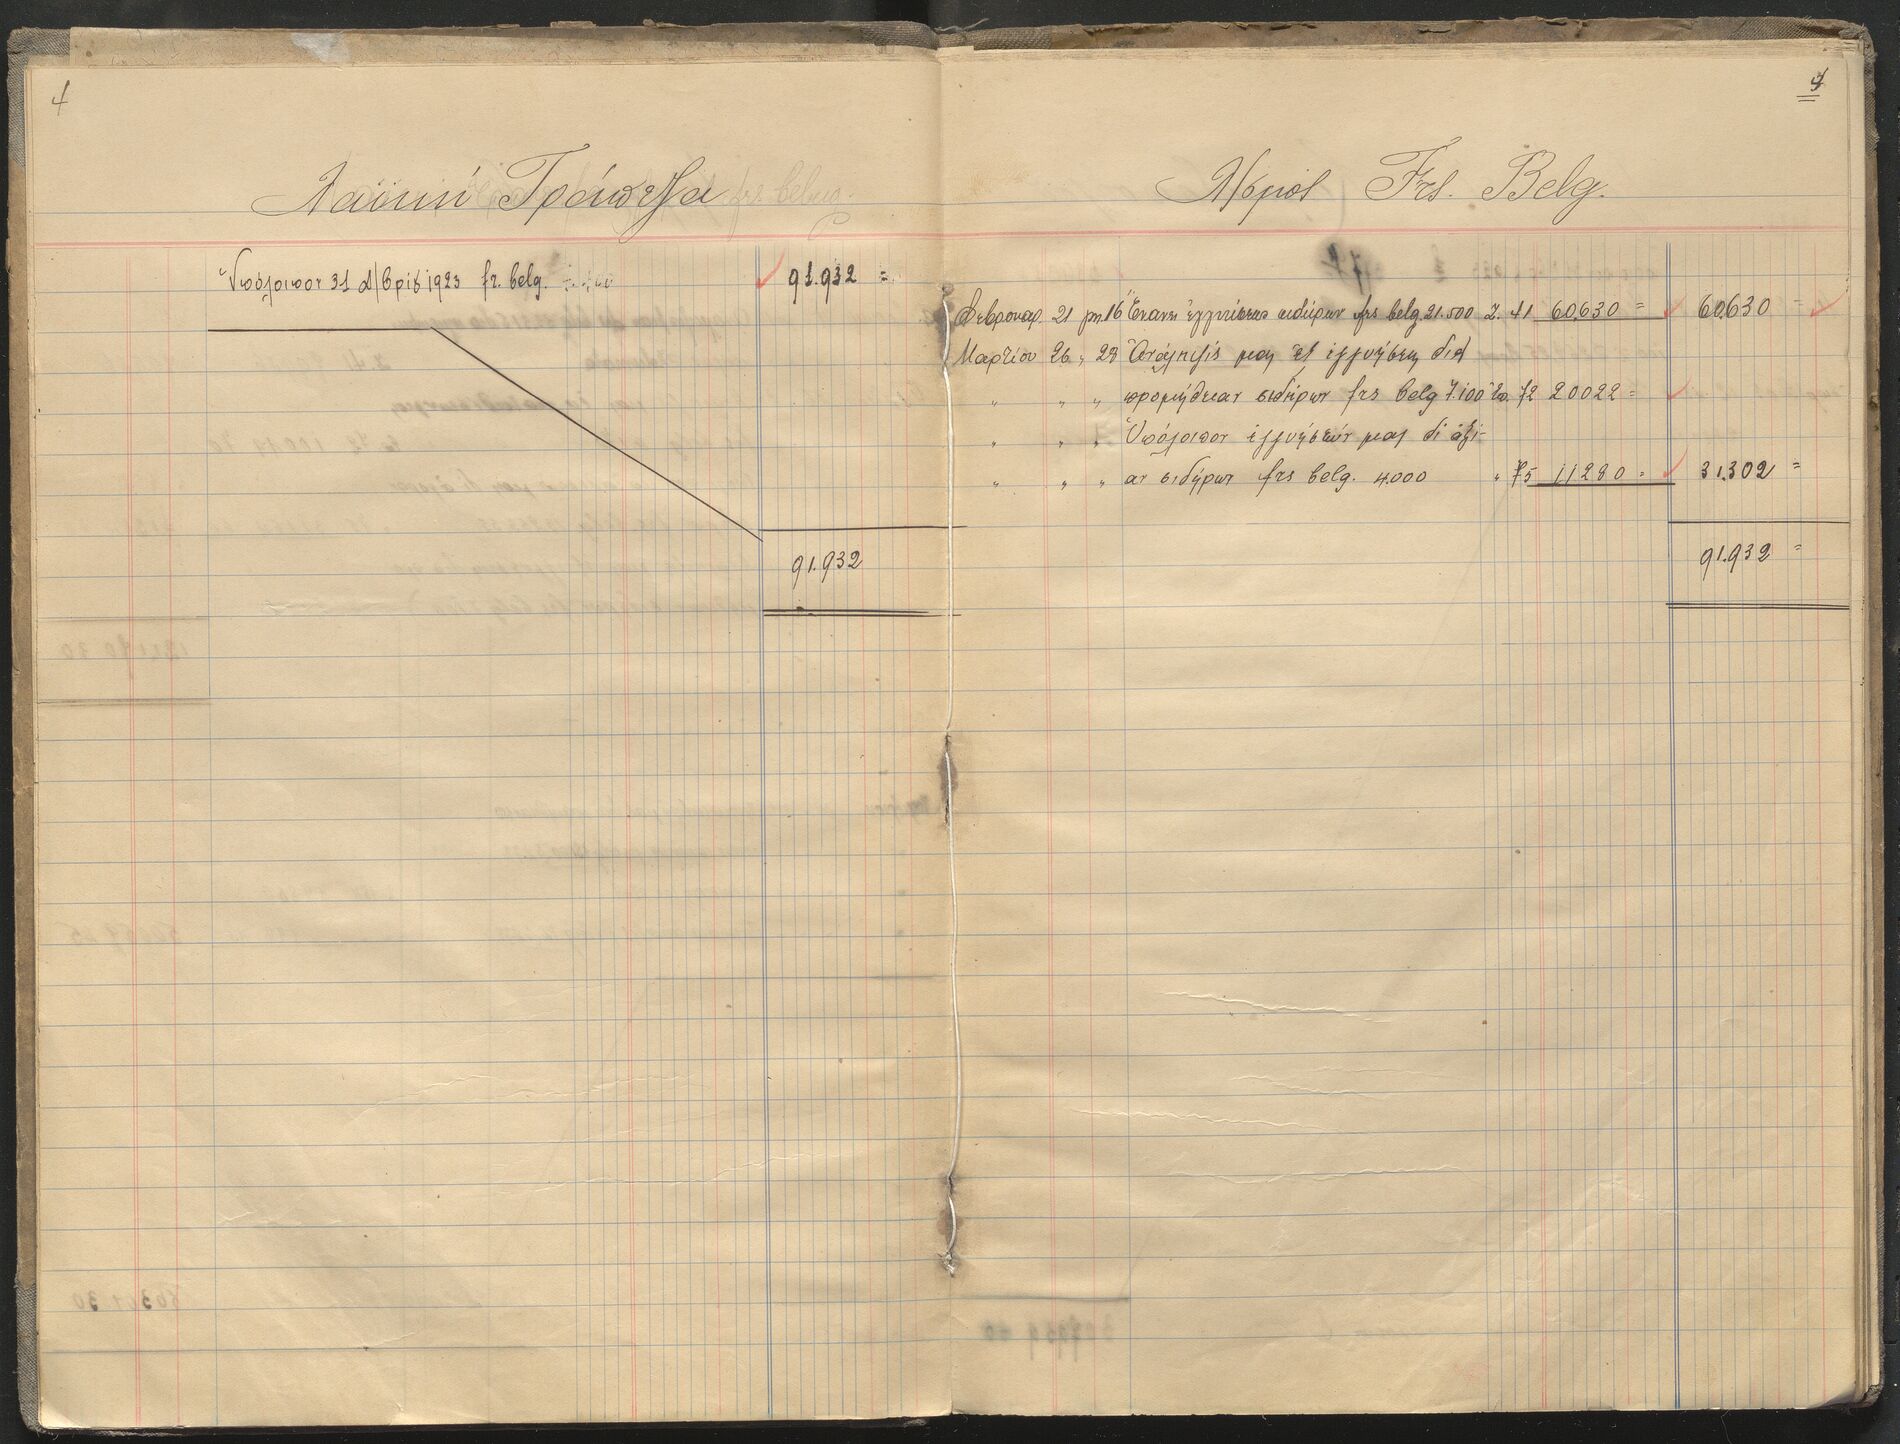 4
Λαϊκή Τράπεζα
Υπόλοιπον 31 Δ/βρίου 1923 fr. belg. 91.932 =
91.932
4
Λ/σμός Frs. Belg.
Φεβρουαρ. 21 μπ. 16 Έναντι εγγυήσεως σιδήρων frs belg. 21.500 2.41 60.630 = 60.630 =
Μαρτίου 26 " 28 Ανάληψίς μας εξ εγγυήσεως διά
" " " προμήθειαν σιδήρων frs belg 7.100 72 20022 =
" " " Υπόλοιπον εγγυήσεών μας δι' αξί-
" " " αν σιδήρων frs belg. 4.000 " 75 11280 = 31.302 =
91.932 =